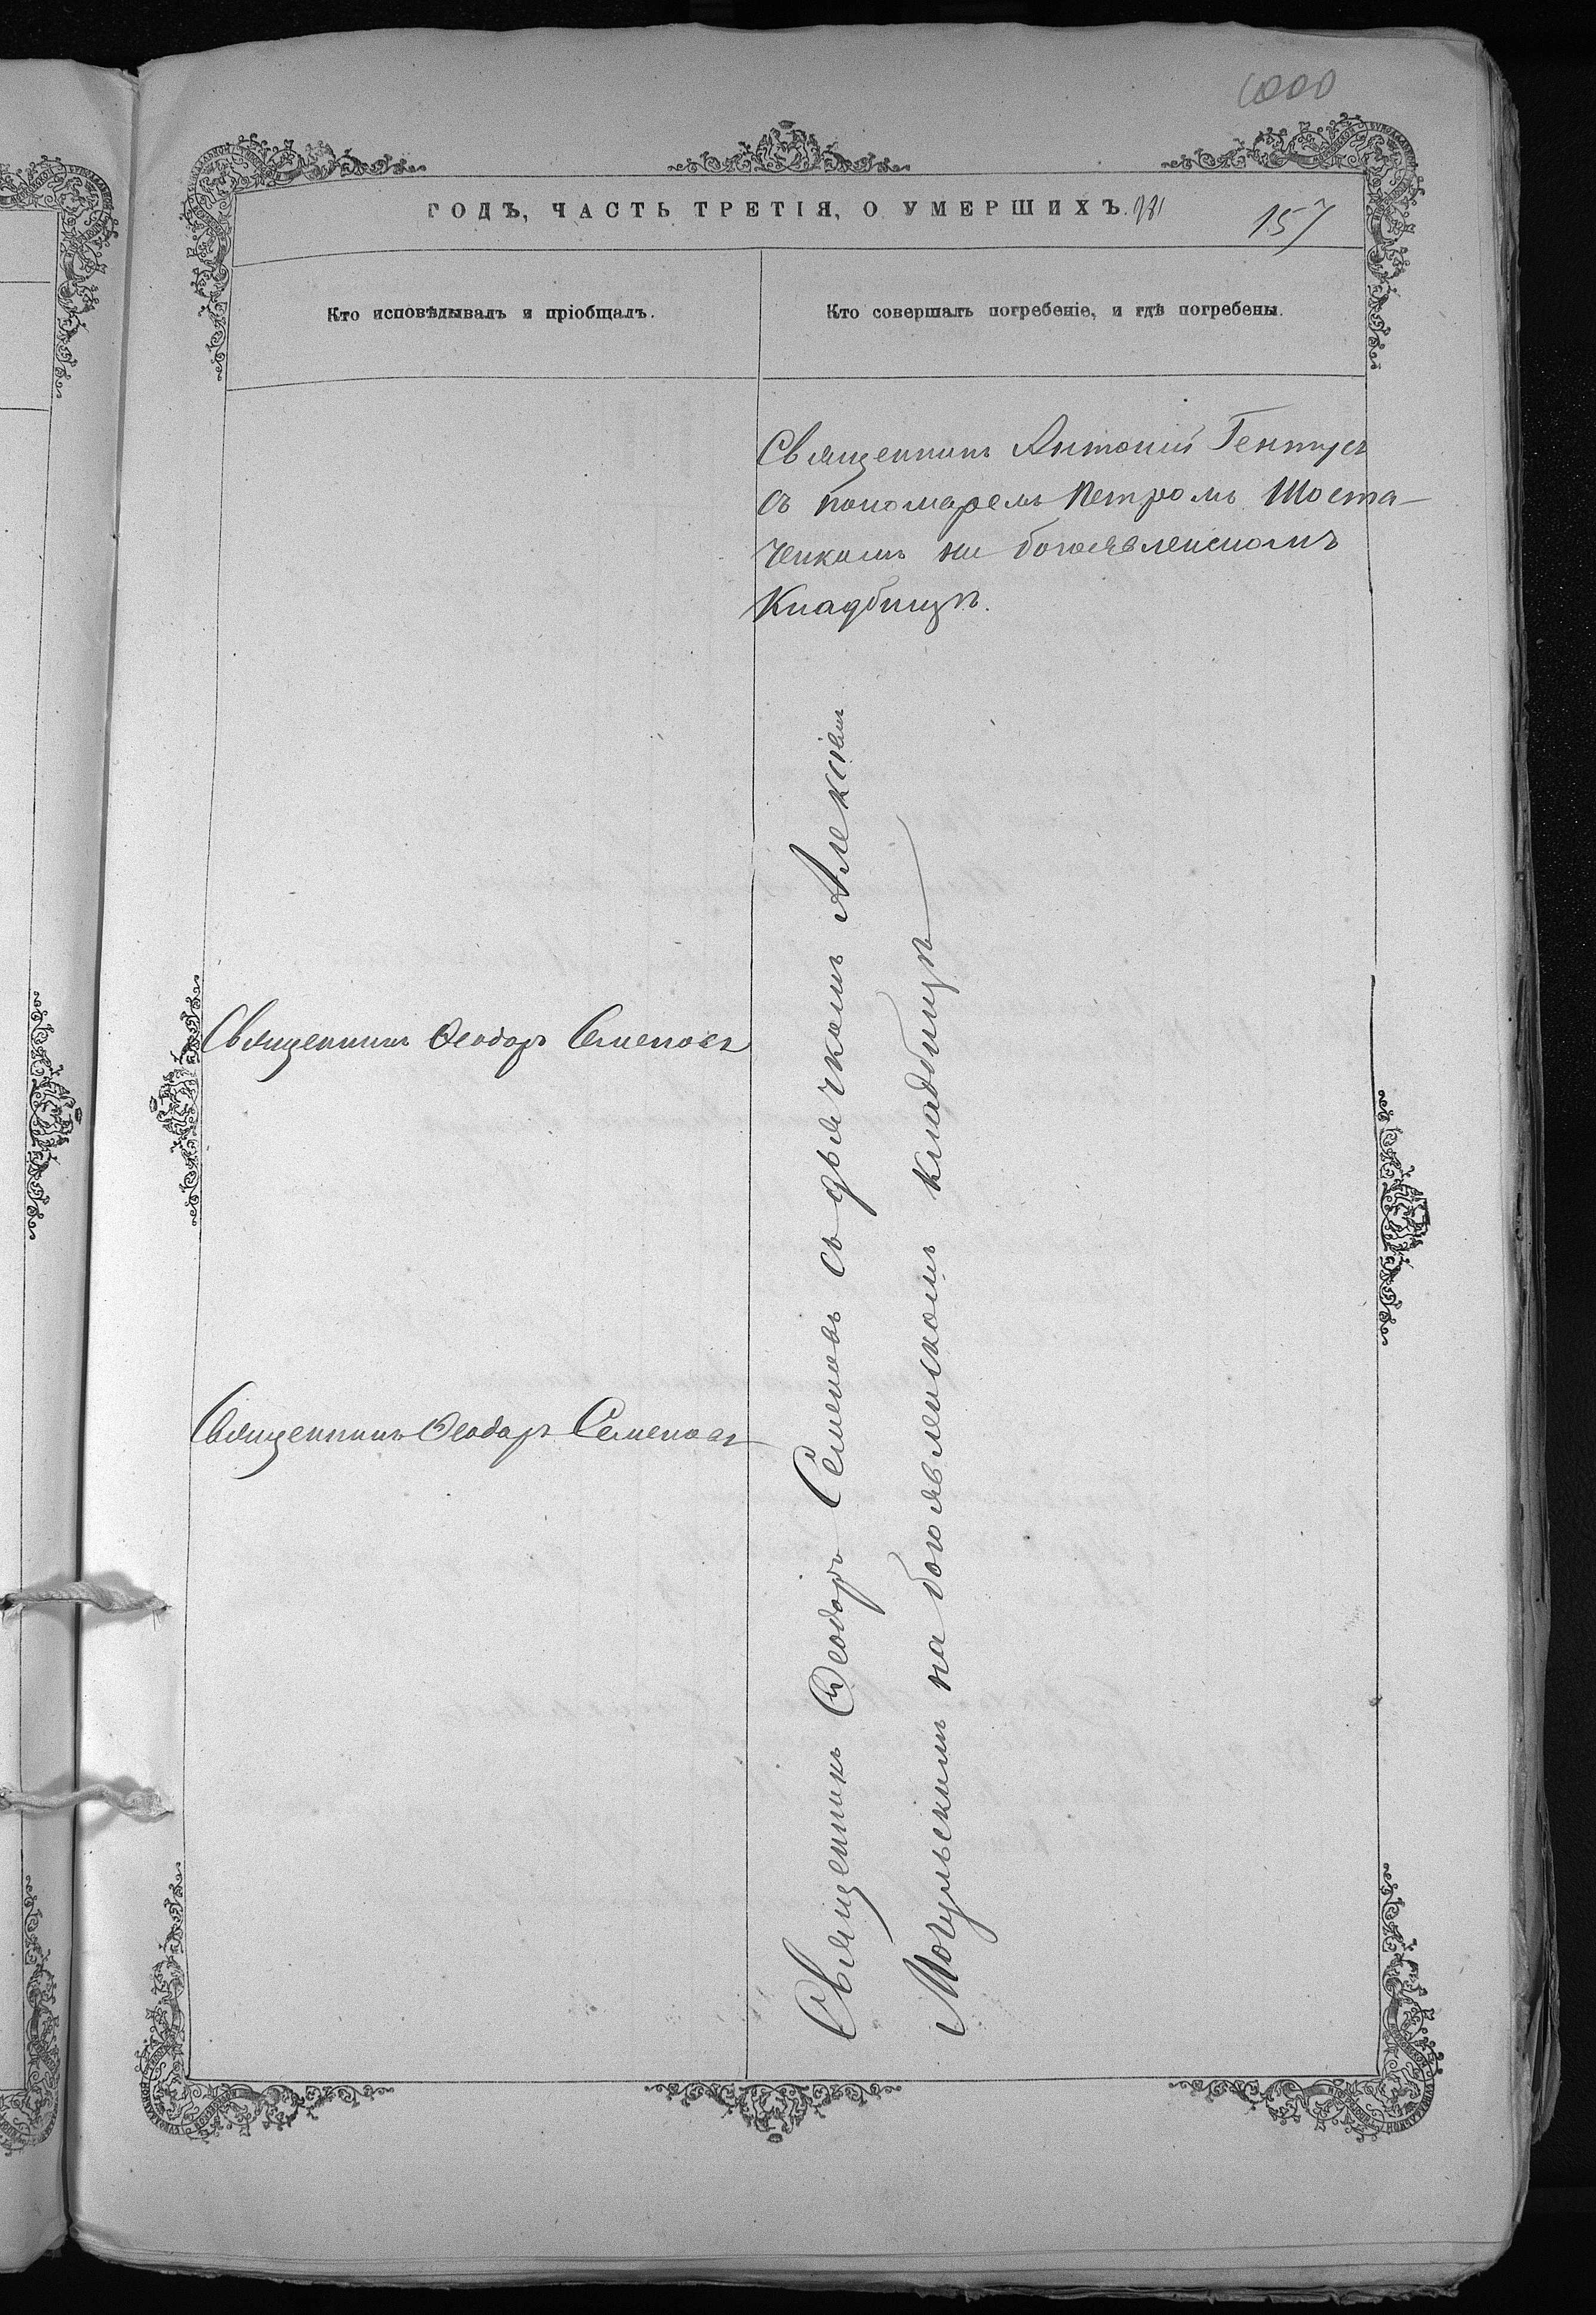 1000
ГОДЪ, ЧАСТЬ ТРЕТІЯ, О УМЕРШИХЪ.
157
Кто исповѣдывалъ и пріобщалъ.
Кто совершалъ погребеніе, и гдѣ погребены.
Священникъ Антоній Гентусъ
съ пономаремъ Петромъ Шоста-
ченкомъ на богоявленскомъ
Кладбищѣ.
Священникъ Ѳеодоръ Семеновъ
Священникъ Ѳеодоръ Семеновъ
Священникъ Ѳеодоръ Семеновъ съ дьячкомъ Алексѣемъ
Могульскимъ на богоявленскомъ кладбищѣ